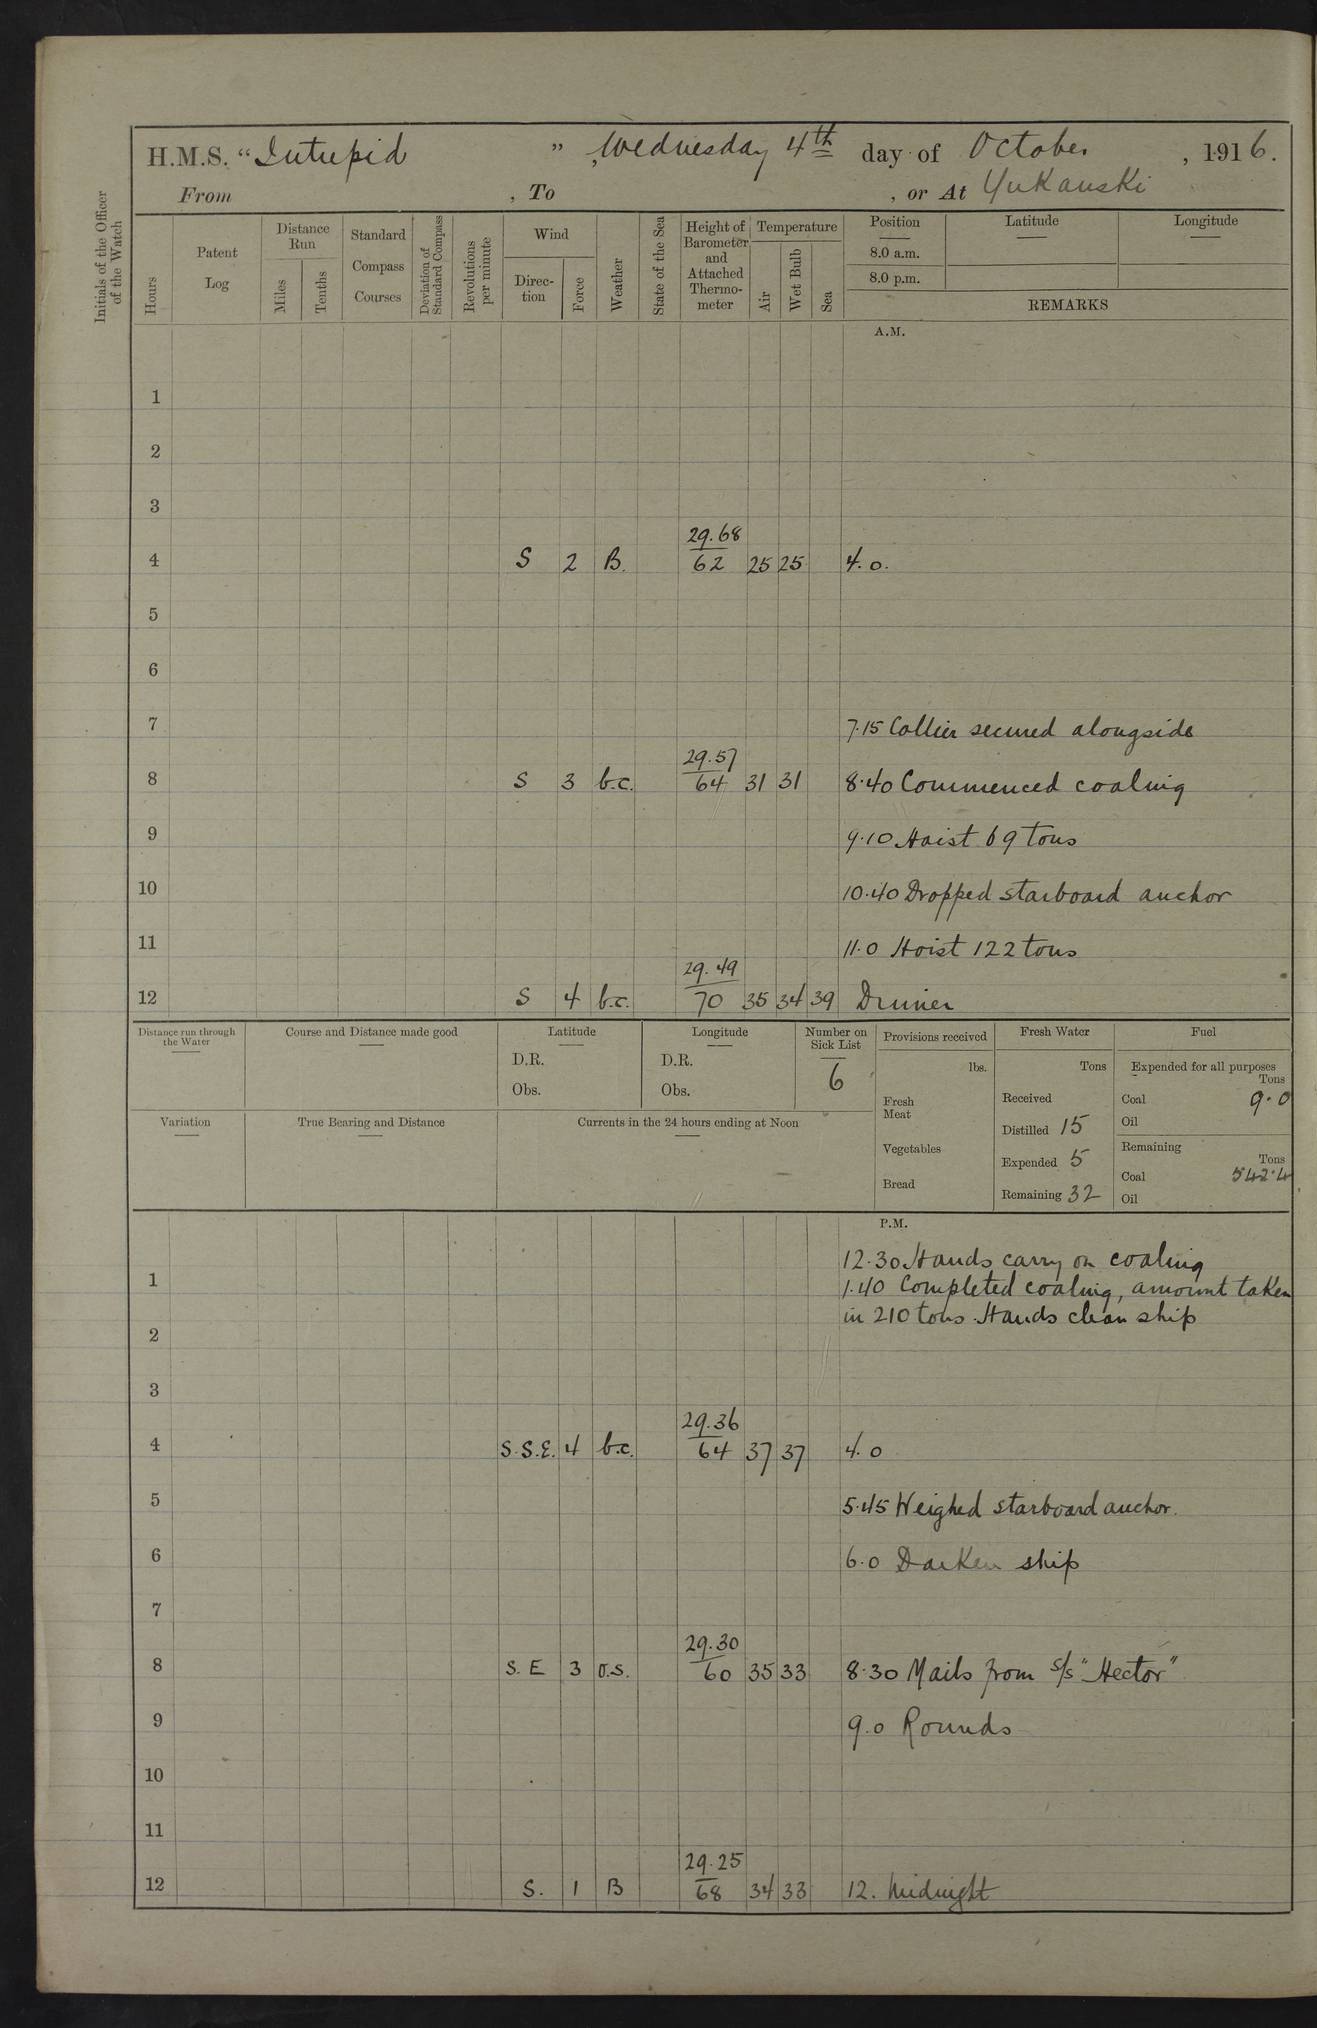 H.M.S. "Intrepid", Wednesday 4th day of October, 1916.
From , To , or At Yukanski
Initials of the Officer of the Watch
Hours
Patent Log
Distance Run
Miles
Tenths
Standard Compass Courses
Deviation of Standard Compass
Revolutions per minute
Wind
Direction
Force
Weather
State of the Sea
Height of Barometer and Attached Thermometer
Temperature
Air
Wet Bulb
Sea
Position
8.0 a.m.
8.0 p.m.
Latitude
Longitude
REMARKS
A.M.
1
2
3
29.68
4 S 2 B. 62 25 25 4.0.
5
6
7 7.15 Collier secured alongside
29.57
8 S 3 b.c. 64 31 31 8.40 Commenced coaling
9 9.10 Hoist 69 tons
10 10.40 Dropped starboard anchor
11 11.0 Hoist 122 tons
29.49
12 S 4 b.c. 70 35 34 39 Dinner
Distance run through the Water
Course and Distance made good
Latitude
D.R.
Obs.
Longitude
D.R.
Obs.
Number on Sick List
6
Provisions received
lbs.
Fresh Meat
Vegetables
Bread
Fresh Water
Tons
Received
Distilled 15
Expended 5
Remaining 32
Fuel
Expended for all purposes
Tons
Coal 9.0
Oil
Remaining
Tons
Coal 542.4
Oil
Variation
True Bearing and Distance
Currents in the 24 hours ending at Noon
P.M.
12.30 Hands carry on coaling
1 1.40 Completed coaling, amount taken
in 210 tons. Hands clean ship
2
3
29.36
4 S.S.E. 4 b.c. 64 37 37 4.0
5 5.45 Weighed starboard anchor.
6 6.0 Darken ship
7
29.30
8 S.E 3 o.s. 60 35 33 8.30 Mails from s/s "Hector"
9 9.0 Rounds
10
11
29.25
12 S. 1 B 68 34 33 12. Midnight